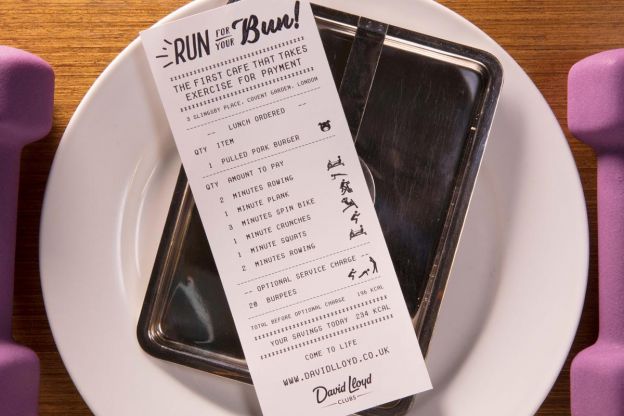 RUN FOR YOUR Bun!
THE FIRST CAFE THAT TAKES
EXERCISE FOR PAYMENT
3 SLINGSBY PLACE, COVENT GARDEN, LONDON
-- LUNCH ORDERED --
QTY ITEM
1 PULLED PORK BURGER
QTY AMOUNT TO PAY
2 MINUTES ROWING
1 MINUTE PLANK
3 MINUTES SPIN BIKE
1 MINUTE CRUNCHES
1 MINUTE SQUATS
2 MINUTES ROWING
-- OPTIONAL SERVICE CHARGE --
20 BURPEES
TOTAL BEFORE OPTIONAL CHARGE 196 KCAL
YOUR SAVINGS TODAY 234 KCAL
COME TO LIFE
WWW.DAVIDLLOYD.CO.UK
David Lloyd
CLUBS